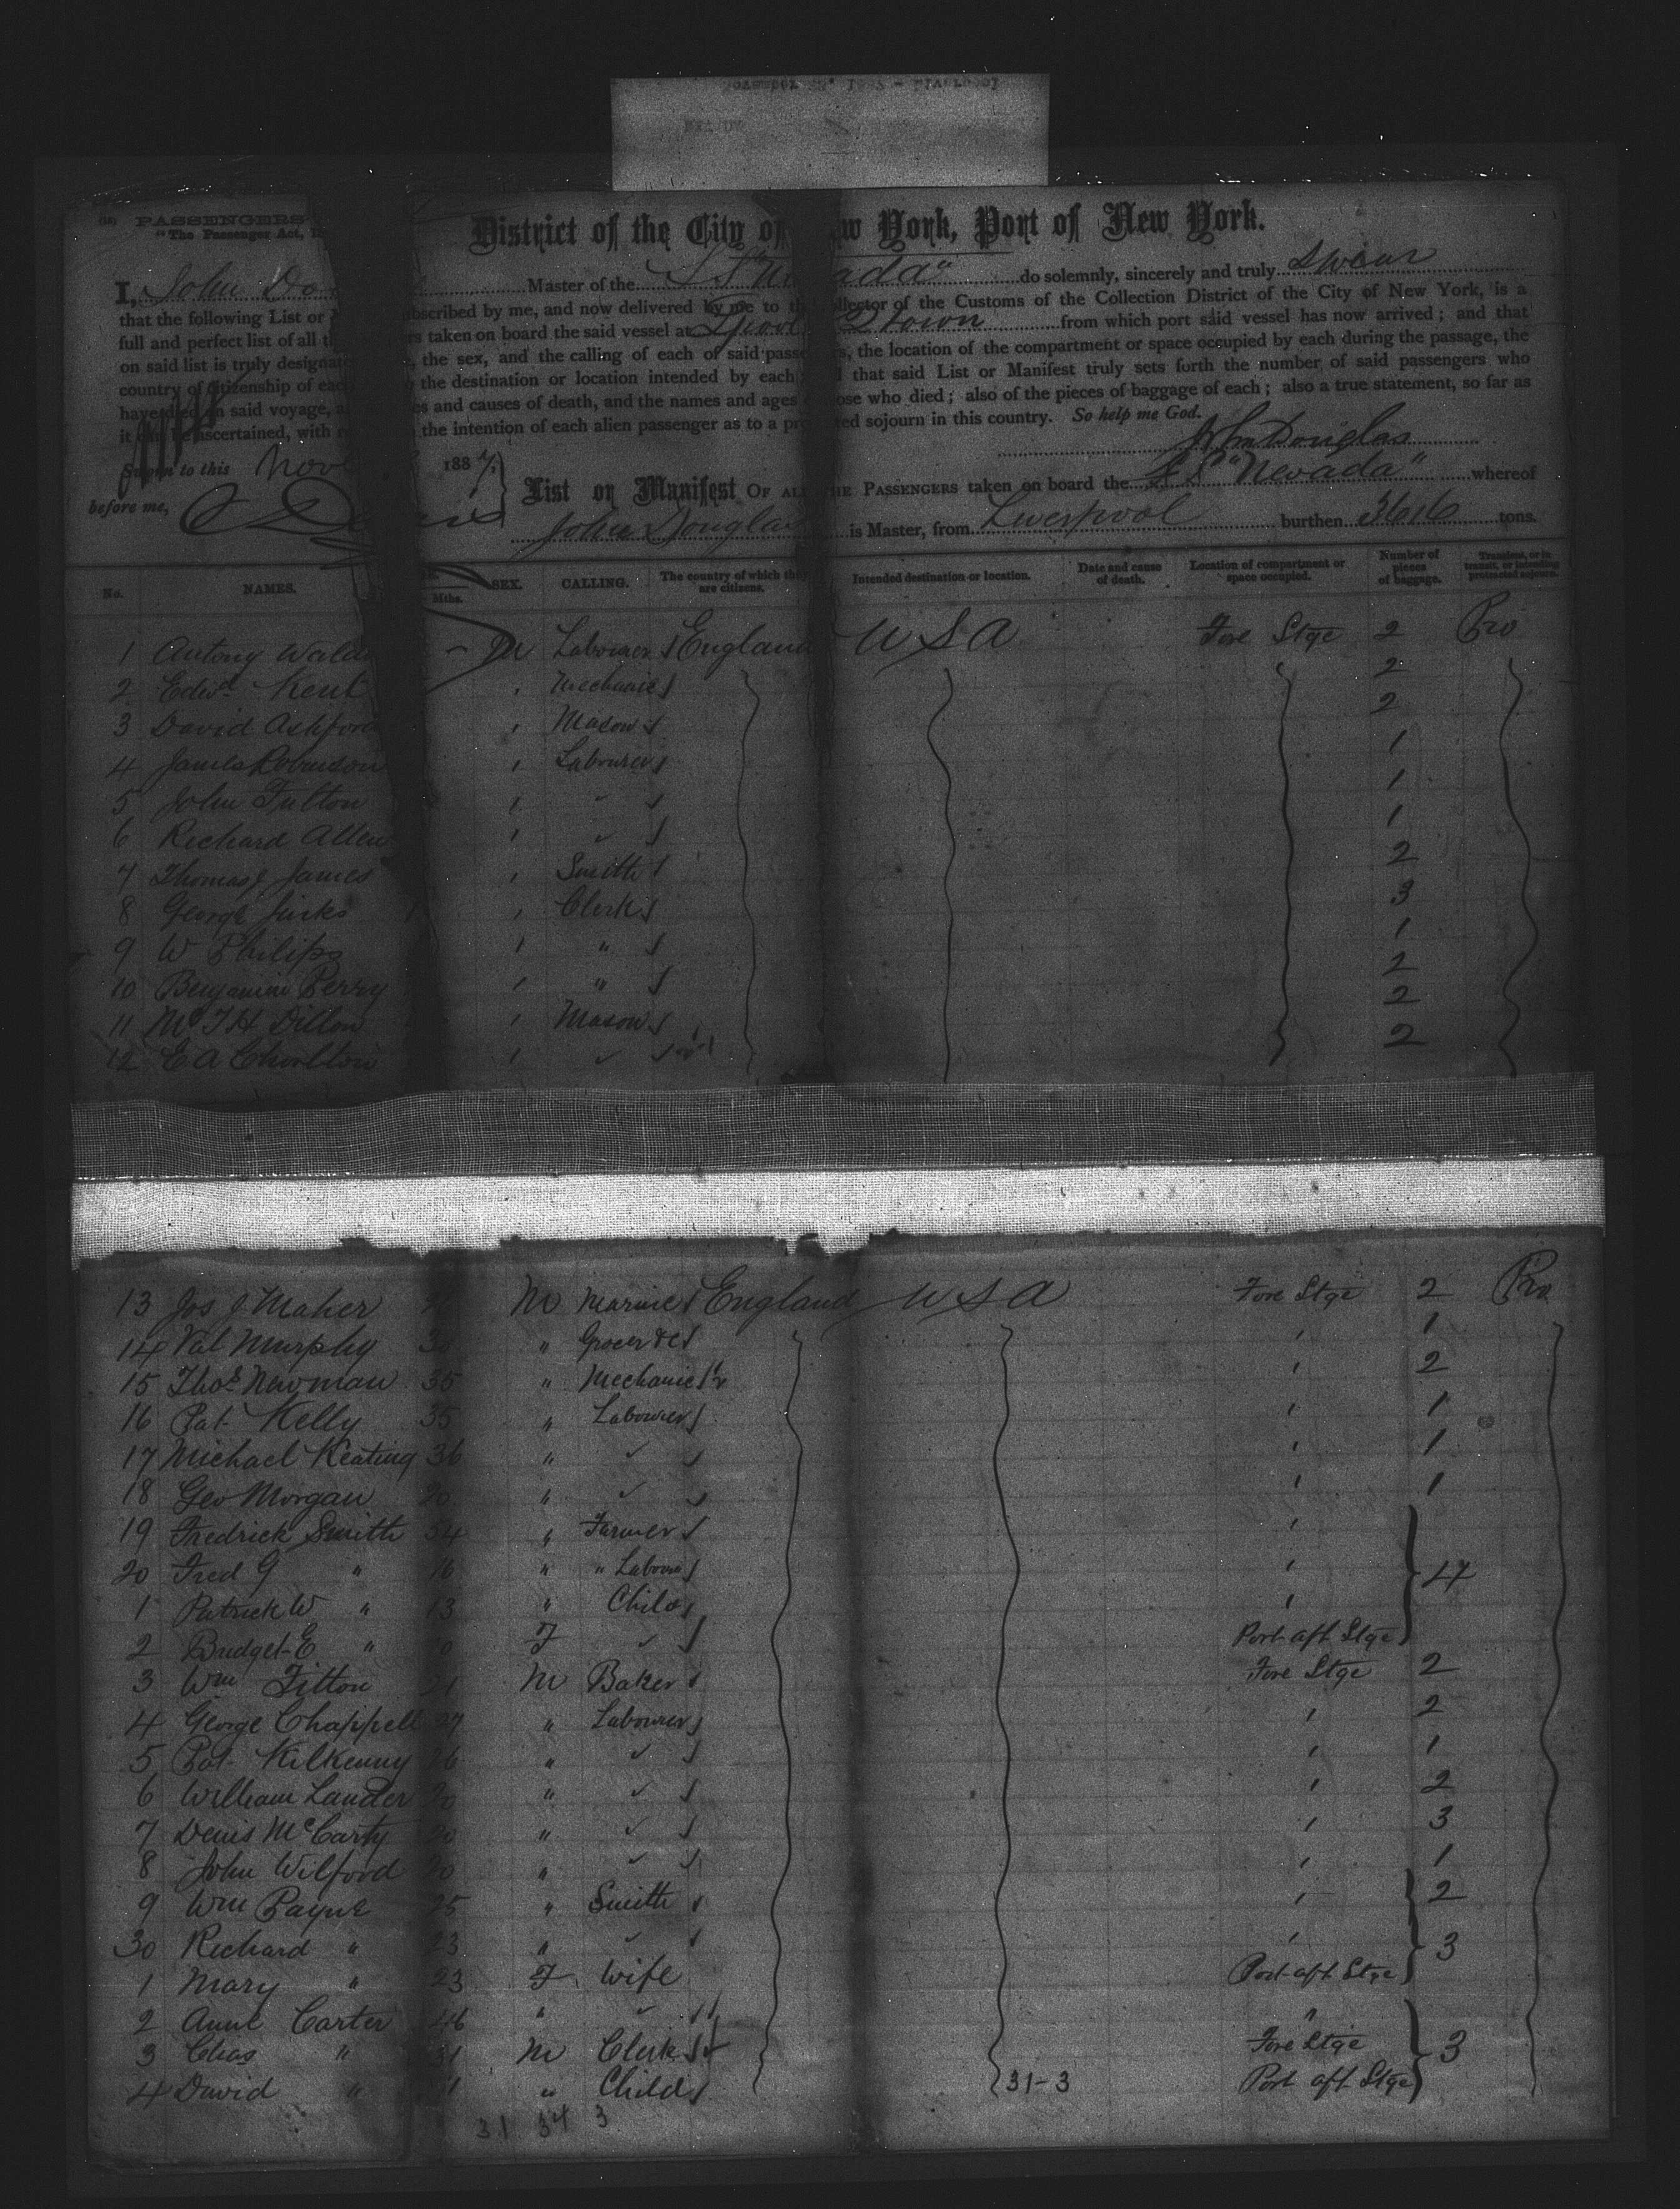 PASSENGERS
"The Passenger Act,
District of the City of New York, Port of New York.
I, John Do Master of the SS "Nevada" do solemnly, sincerely and truly swear
that the following List or subscribed by me, and now delivered by me to the Collector of the Customs of the Collection District of the City of New York, is a
full and perfect list of all the rs taken on board the said vessel at Lpool Qtown from which port said vessel has now arrived; and that
on said list is truly designated the sex, and the calling of each of said passengers, the location of the compartment or space occupied by each during the passage, the
country of citizenship of each the destination or location intended by each that said List or Manifest truly sets forth the number of said passengers who
have died on said voyage, a es and causes of death, and the names and ages of those who died; also of the pieces of baggage of each; also a true statement, so far as
it can be ascertained, with re the intention of each alien passenger as to a protracted sojourn in this country. So help me God.
John Douglas
Sworn to this Nov 1887
before me,
List or Manifest OF ALL THE PASSENGERS taken on board the SS "Nevada" whereof
John Douglas is Master, from Liverpool burthen 3616 tons.
No. NAMES. Mths. SEX. CALLING. The country of which they are citizens. Intended destination or location. Date and cause of death. Location of compartment or space occupied. Number of pieces of baggage. Transient, or in transit, or intending protracted sojourn.
1 Antony Wald - M Labourer England U S A Fore Stge 2 Pro
2 Edwd Kent Mechanic 2
3 David Ashford Mason 2
4 James Robinson Labourer 1
5 John Fulton 1
6 Richard Allen 1
7 Thomas J James Smith 2
8 George Jinks Clerk 3
9 W Philips " 1
10 Benjamin Perry " 2
11 Mc T H Dillon Mason 2
12 E A Chorlton 2
13 Jos J Maher M Marine England U S A Fore Stge 2 Pro
14 Val Murphy " Grocer &c 1
15 Thos Newman 35 " Mechanic 2
16 Pat Kelly 35 " Labourer 1
17 Michael Keating 36 " 1
18 Geo Morgan " 1
19 Fredrick Smith 54 " Farmer
20 Fred G " 16 " " Labour 4
1 Patrick W " 13 " Child
2 Bridget E " F Port aft Stge
3 Wm Fitton 21 M Baker Fore Stge 2
4 George Chappell 27 " Labourer 2
5 Pat Kilkenny 26 " 1
6 William Lander 20 " 2
7 Denis McCarty 20 " 3
8 John Wilford 20 " 1
9 Wm Payne 25 " Smith 2
30 Richard " 23 " 3
1 Mary " 23 F Wife Port aft Stge
2 Anne Carter 46 " "
3 Chas " 31 M Clerk Fore Stge 3
4 David " " Child 31-3 Port aft Stge
31 34 3